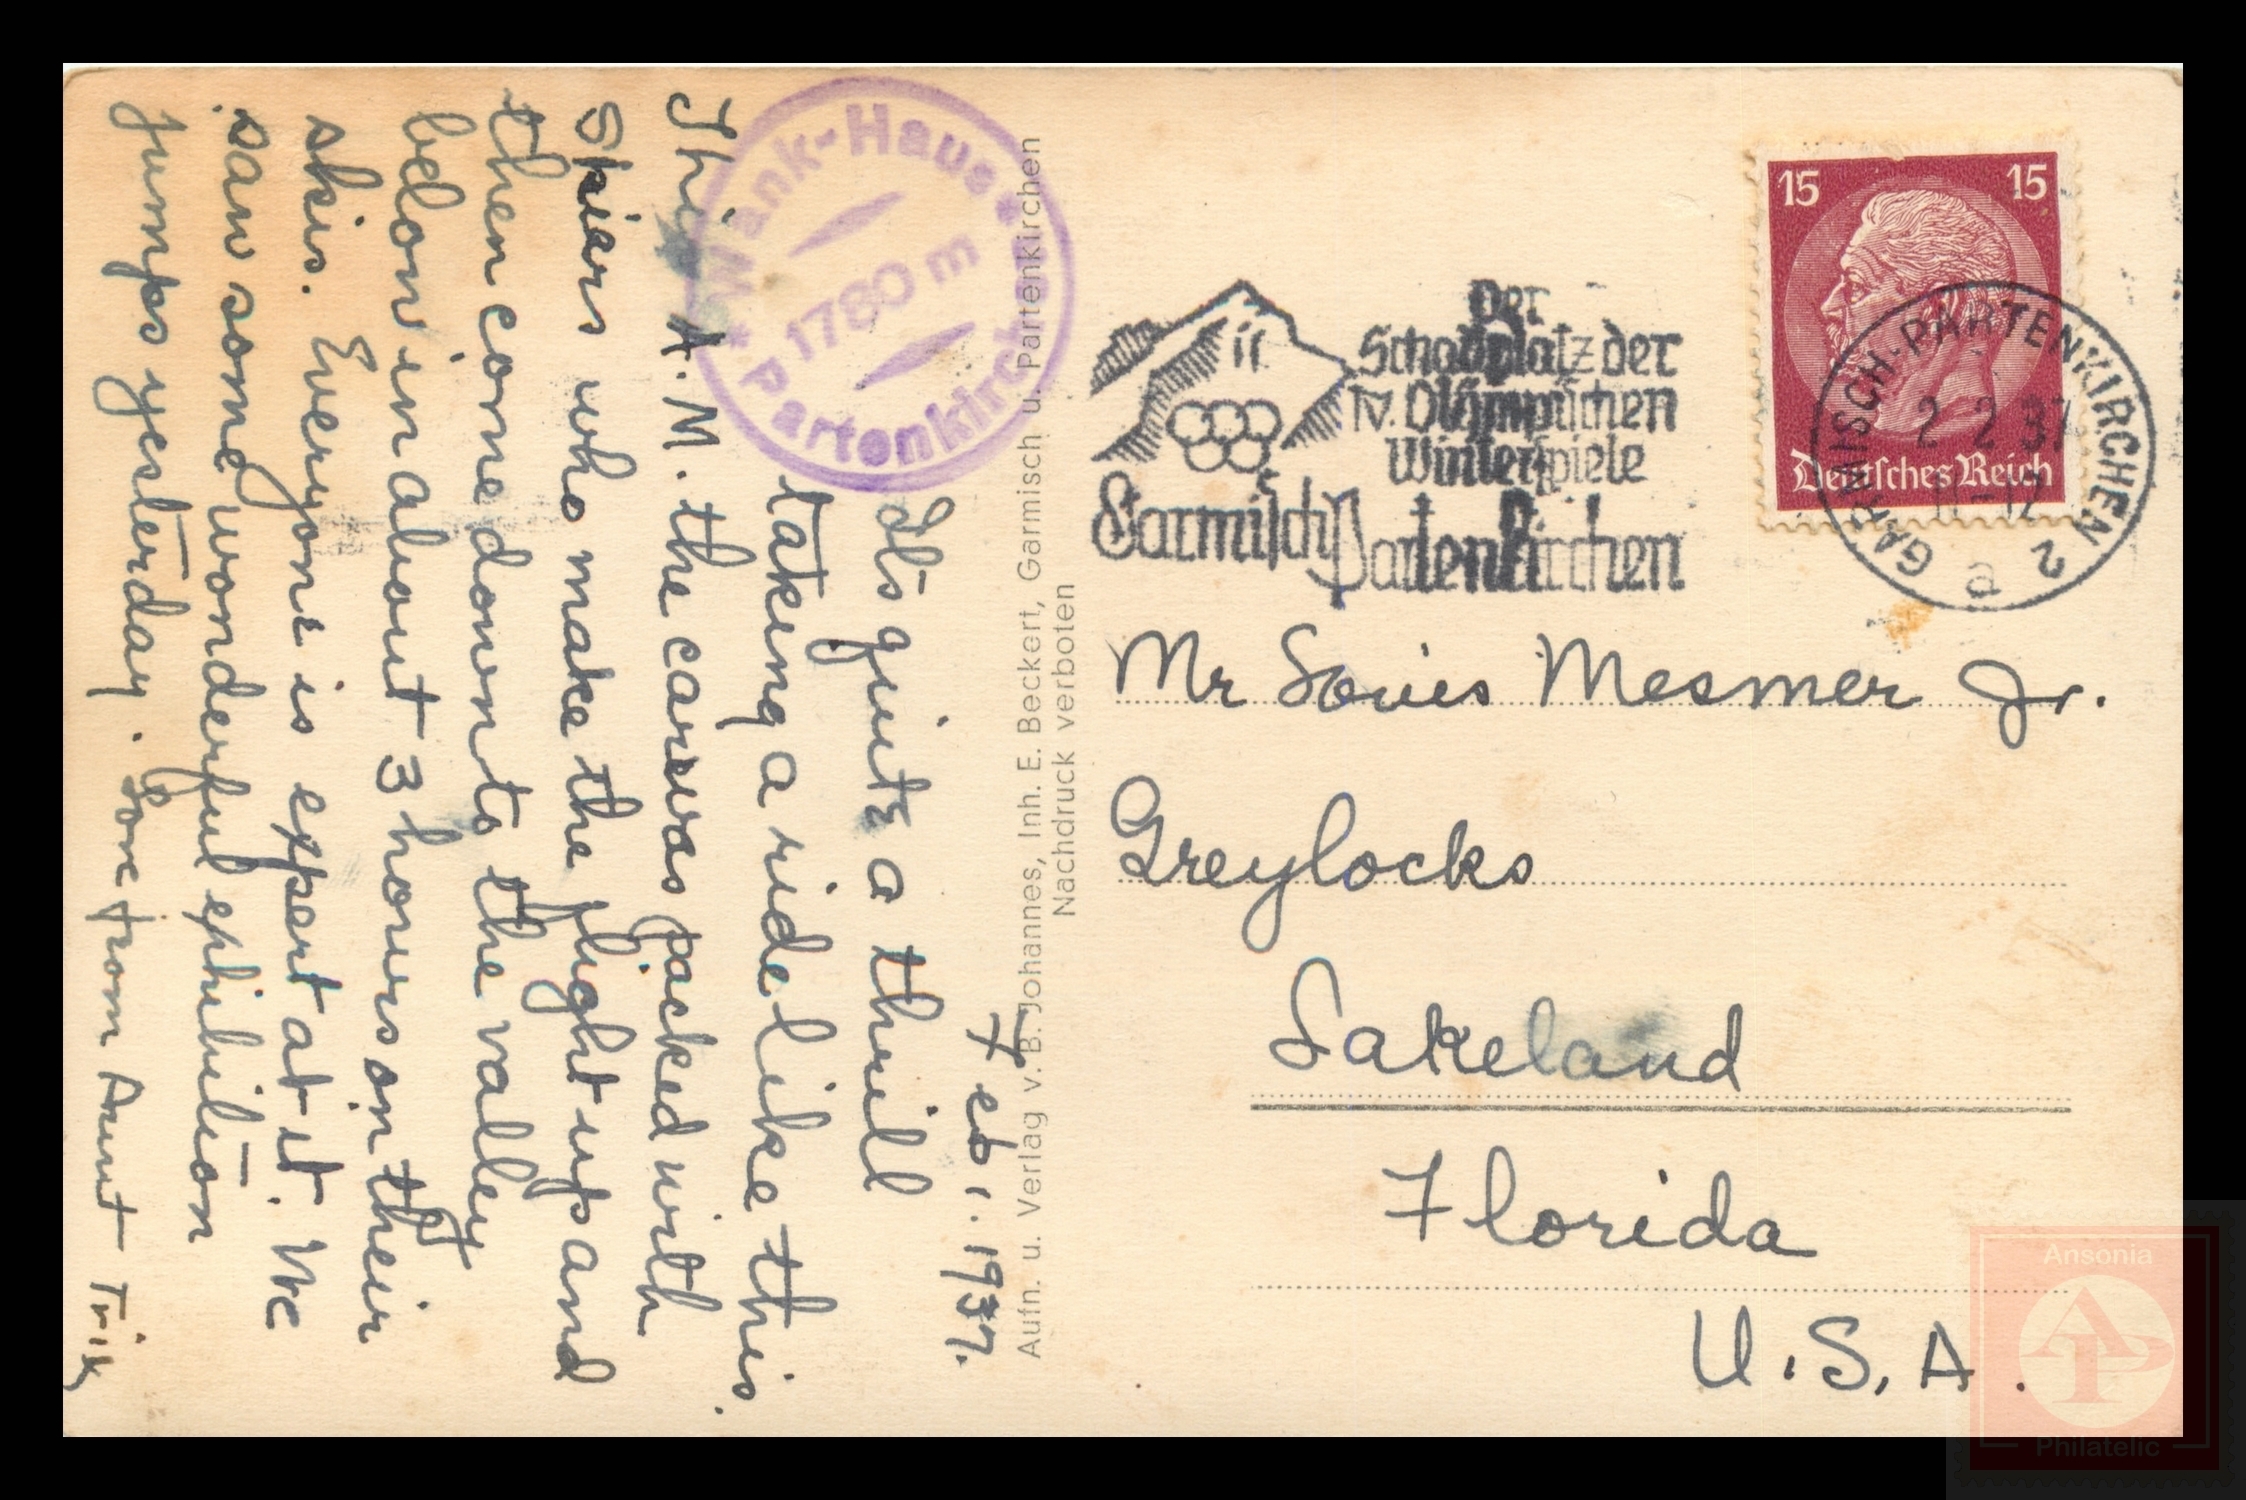 Feb. 1937.
It's quite a thrill
taking a ride like this.
This A.M. the car was packed with
skiers who make the flight up and
then come down to the valley
below in about 3 hours on their
skis. Everyone is expert at it. We
saw some wonderful exhibition
jumps yesterday. Love from Aunt Trix
Wank-Haus
1780 m
Partenkirchen
Aufn. u. Verlag v. B. Johannes, Inh. E. Beckert, Garmisch u. Partenkirchen
Nachdruck verboten
Der
Schauplatz der
IV. Olympischen
Winterspiele
Garmisch Partenkirchen
15 15
Deutsches Reich
GARMISCH-PARTENKIRCHEN 2
2 2 37
11-12
e
Mr Louis Mesmer Jr.
Greylocks
Lakeland
Florida
U.S.A.
Ansonia
AP
Philatelic